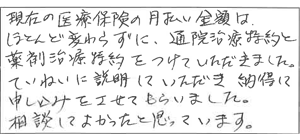 現在の医療保険の月払い金額は、
ほとんど変わらずに、通院治療特約と
薬剤治療特約をつけていただきました。
ていねいに説明していただき納得して
申し込みをさせてもらいました。
相談してよかったと思っています。